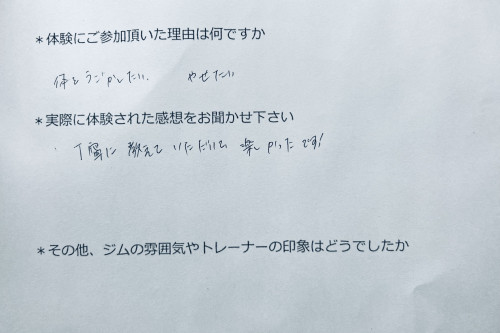 ＊体験にご参加頂いた理由は何ですか
体をうごかしたい、 やせたい
＊実際に体験された感想をお聞かせ下さい
丁寧に教えていただいて楽しかったです!
＊その他、ジムの雰囲気やトレーナーの印象はどうでしたか